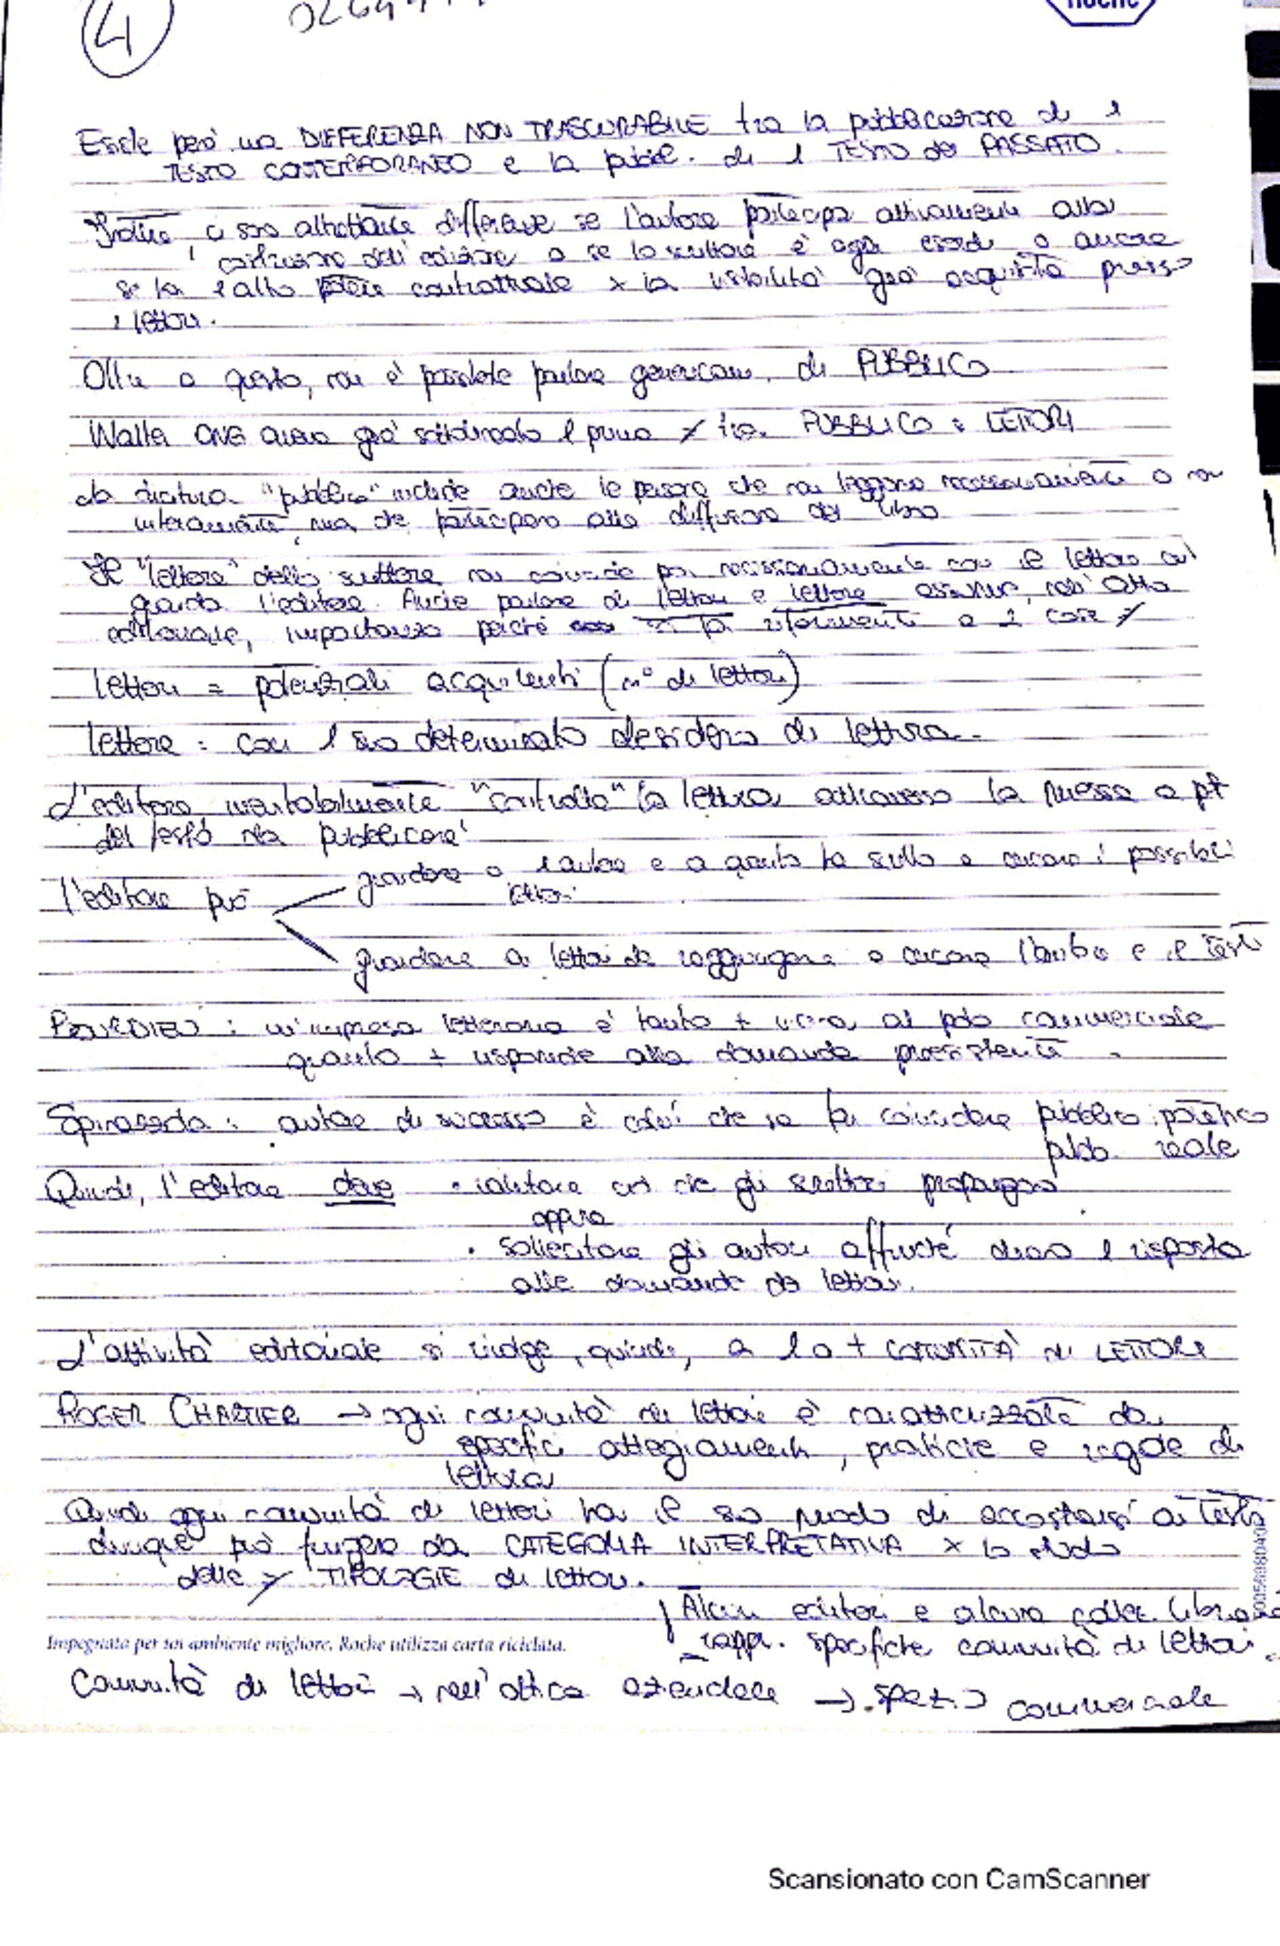 4
Roche
Esiste però una DIFFERENZA NON TRASCURABILE tra la pubblicazione di 1
TESTO CONTEMPORANEO e la pubbl. di 1 TESTO del PASSATO.
Inoltre, ci sono altrettante differenze se l'autore partecipa attivamente alla
costruzione dell'edizione o se lo scrittore è ogni esordi o ancora
se ha 1 alto potere contrattuale x la visibilità già acquisita presso
i lettori.
Oltre a questo, non è possibile parlare genericam. di PUBBLICO
Walter ONG aveva già sottolineato 1 prima ≠ tra PUBBLICO e LETTORI
La dicitura "pubblico" include anche le persone che non leggono necessariamente o non
interamente, ma che partecipano alla diffusione del libro
Il "lettore" dello scrittore non coincide poi necessariamente con il lettore cui
guarda l'editore. Anche parlare di lettori e lettore assume, nell'ottica
editoriale, importanza perché si fa riferimento a 2 cose ≠
lettori = potenziali acquirenti (n° di lettori)
lettore = con 1 suo determinato desiderio di lettura.
L'editore inevitabilmente "controlla" la lettura attraverso la messa a pt
del testo da pubblicare
l'editore può
guardare a 1 autore e a quanto ha scritto e cercare i possibili
lettori
guardare ai lettori da raggiungere e cercare l'autore e il testo
BOURDIEU: un'impresa letteraria è tanto + vicina al polo commerciale
quanto + risponde alla domanda preesistente.
Spinazzola: autore di successo è colui che sa far coincidere pubblico ipotetico
pubb. reale
Quindi, l'editore deve
oppure
• sollecitare gli autori affinché diano 1 risposta
alle domande dei lettori.
L'attività editoriale si rivolge, quindi, a 1 o + COMUNITÀ di LETTORI
ROGER CHARTIER → ogni comunità di lettori è caratterizzata da
specifici atteggiamenti, pratiche e regole di
lettura
Quindi ogni comunità di lettori ha il suo modo di accostarsi ai testi
dunque può fungere da CATEGORIA INTERPRETATIVA x lo studio
delle ≠ TIPOLOGIE di lettori.
Alcuni editori e alcune collez. librarie
rapp. specifiche comunità di lettori.
Impegnata per un ambiente migliore, Roche utilizza carta riciclata.
Comunità di lettori → nell'ottica aziendale → spazio commerciale
Scansionato con CamScanner